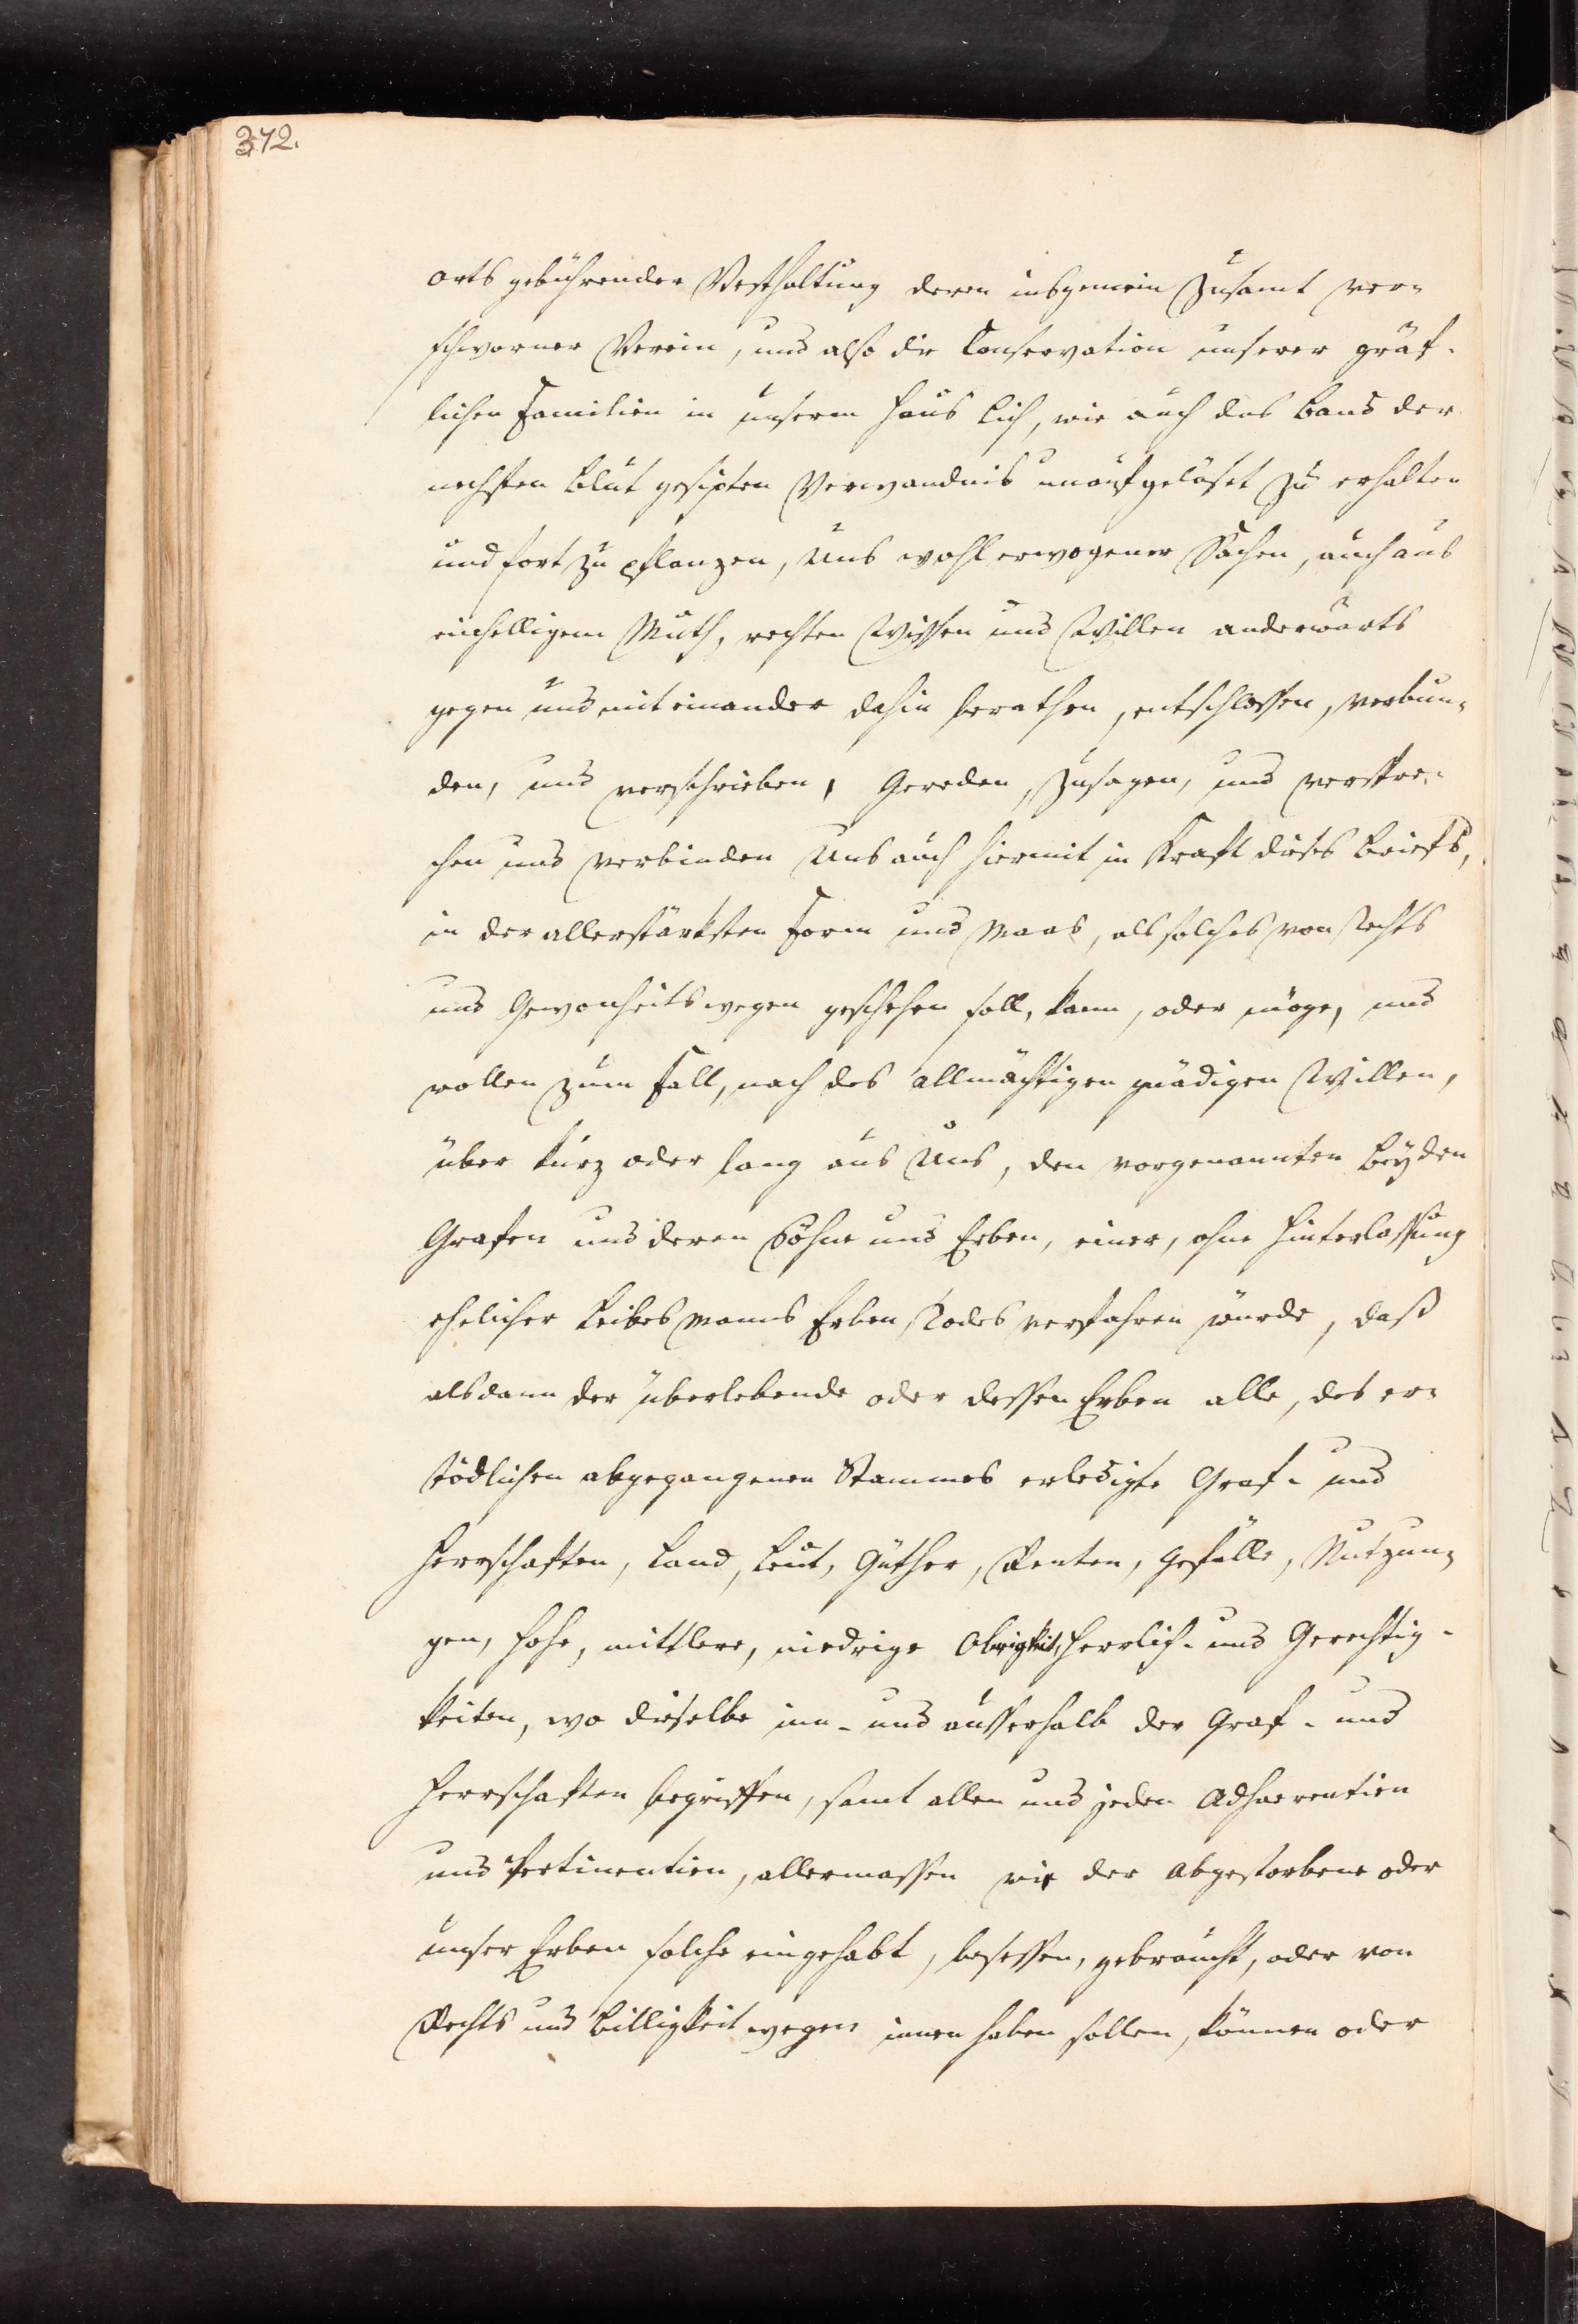 372.
orts gebührender Vesthaltung deren insgemein zusamt ver-
schworner Verein, und also die Conservation unserer gräf-
lichen Familien in unserm Haus Lich, wie auch das Band der
nechsten Blut gesipten Verwandnis unaufgelöset zu erhalten
und fort zu pflanzen, Uns wohl erwogener Sachen, auch aus
einhelligem Muth, rechten Wissen und Willen anderwärts
gegen und mit einander dahin berathen, entschlossen, verbun-
den, und verschrieben, Gereden, zusagen, und verspre-
chen und verbinden Uns auch hiermit in Kraft dieses Briefs,
in der allerstärksten Form und Maas, als solches von Rechts
und Gewonheits wegen geschehen soll, kann, oder möge, und
wollen zum Fall, nach des allmächtigen gnädigen Willen,
über kurz oder lang aus Uns, den vorgenannten beyden
Grafen und deren Söhne und Erben, einer, ohne Hinterlassung
ehelicher Leibes Manns Erben, Todes verfahren würde, daß
alsdann der überlebende oder dessen Erben alle, des er-
tödlichen abgegangenen Stammes erledigte Graf- und
Herrschaften, Land, Leut, Güther, Renten, Gefälle, Nutzun-
gen, hohe, mittlere, niedrige Obrigkeit, Herrlich- und Gerechtig-
keiten, wo dieselbe inn- und ausserhalb der Graf- und
Herrschaften begriffen, samt allen und jeden Adhaerentien
und Pertinentien, allermassen wie der Abgestorbene oder
unser Erben solche eingehabt, besessen, gebraucht, oder von
Rechts und Billigkeit wegen innen haben sollen, können oder